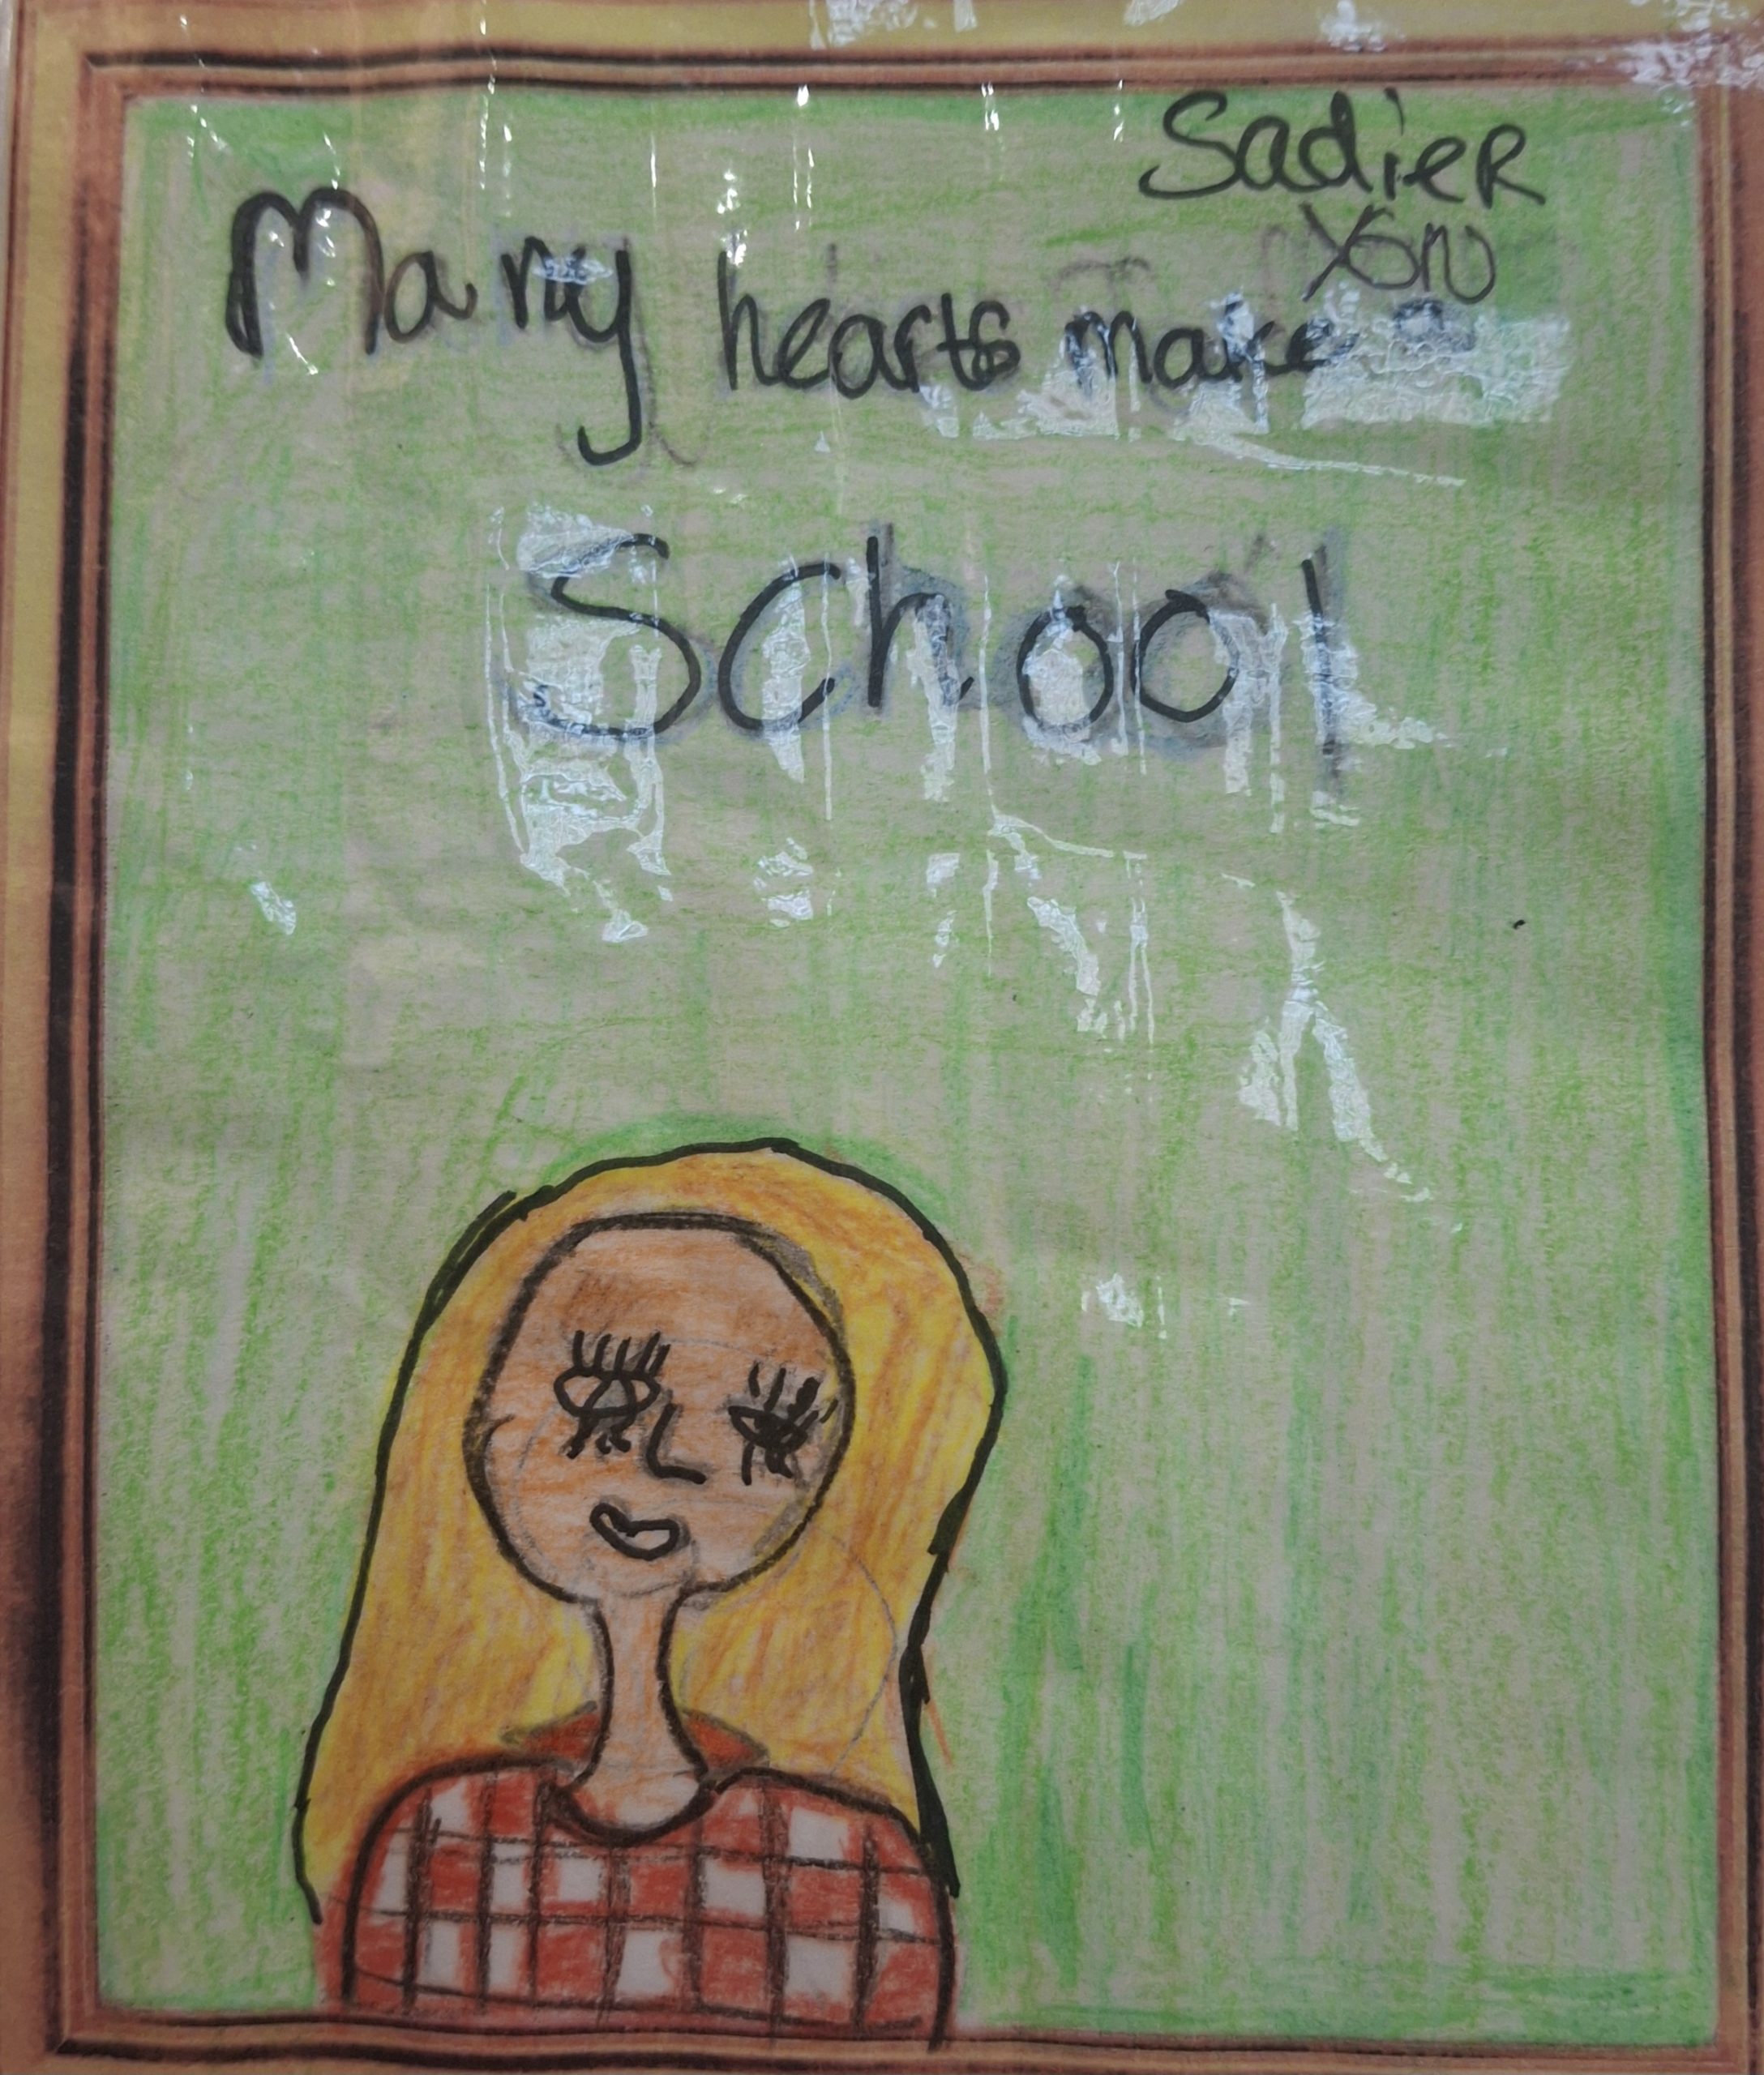 SadieR
Many hearts make a
School